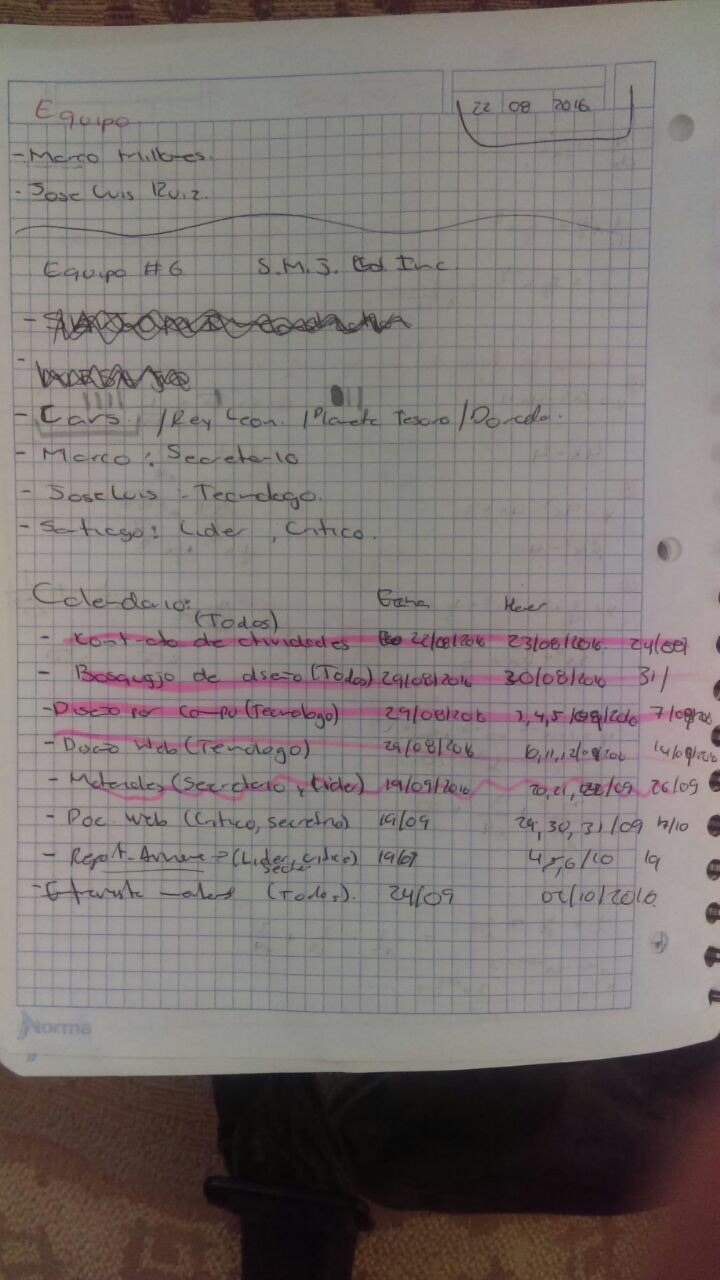 22 08 2016
Equipo
- Marco
- Jose Luis Ruiz.
Equipo #6 S.M.J. Inc
- Cars. / Rey Leon. / Planeta Tesoro / Dorado.
- Marco: Secretario
- Jose Luis: Tecnologo.
- Santiago: Lider, Critico.
Calendario:
(Todos)
- Contrato de actividades 22/08/2016 23/08/2016. 24/08
- Bosquejo de diseño (Todos) 29/08/2016 30/08/2016 31/
- Diseño por Compu (Tecnologo) 29/08/2016 3,4,5 /2016 7/09/2016
- Web (Tecnologo) 29/08/2016 10,11,12/09/2016 14/09/2016
- Materiales (Secretario y Lider) 19/09/2016 20,21, /09 26/09
- Doc. Web (Critico, secretario) 19/09 29,30,31/09 /10
- (Lider, critico) 4,5,6/10 19
- (Todos). 24/09 /10/2016.
Norma